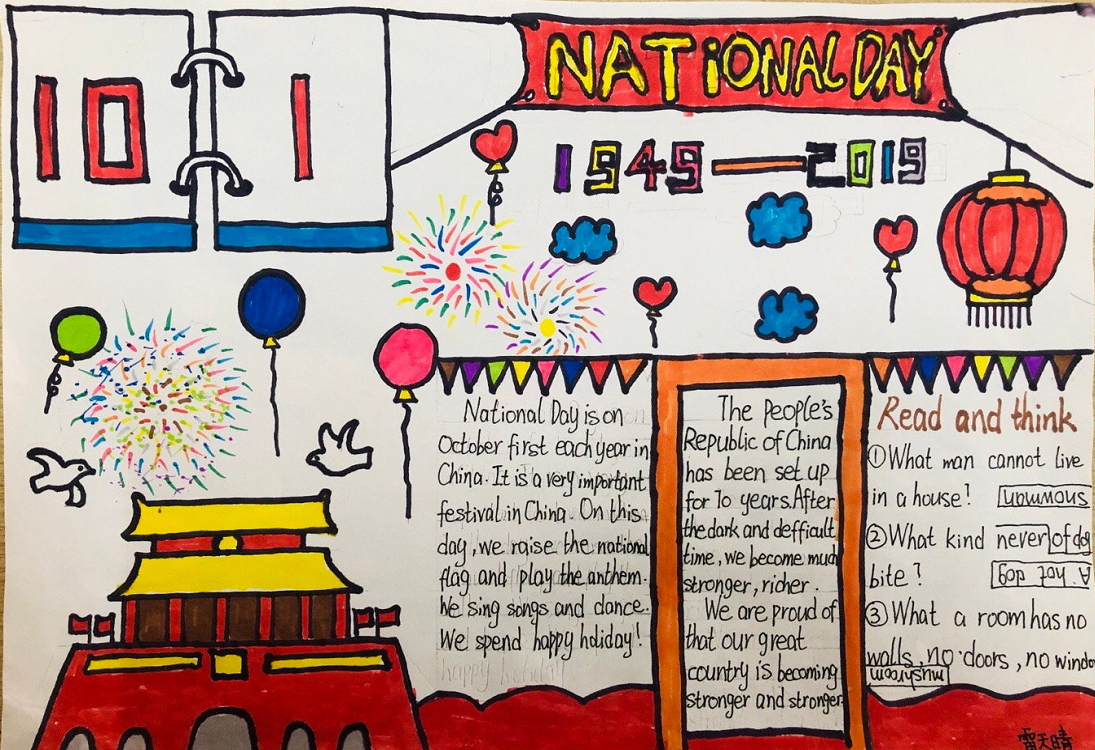 10 1
NATIONAL DAY
1949—2019
National Day is on
October first each year in
China. It is a very important
festival in China. On this
day, we raise the national
flag and play the anthem.
We sing songs and dance.
We spend happy holiday!
The People's
Republic of China
has been set up
for 70 years. After
the dark and defficult
time, we become much
stronger, richer.
We are proud of
that our great
country is becoming
stronger and stronger.
Read and think
①What man cannot live
in a house?
snowman
②What kind never of dog
bite?
A hot dog
③What a room has no
walls, no doors, no window
mushroom